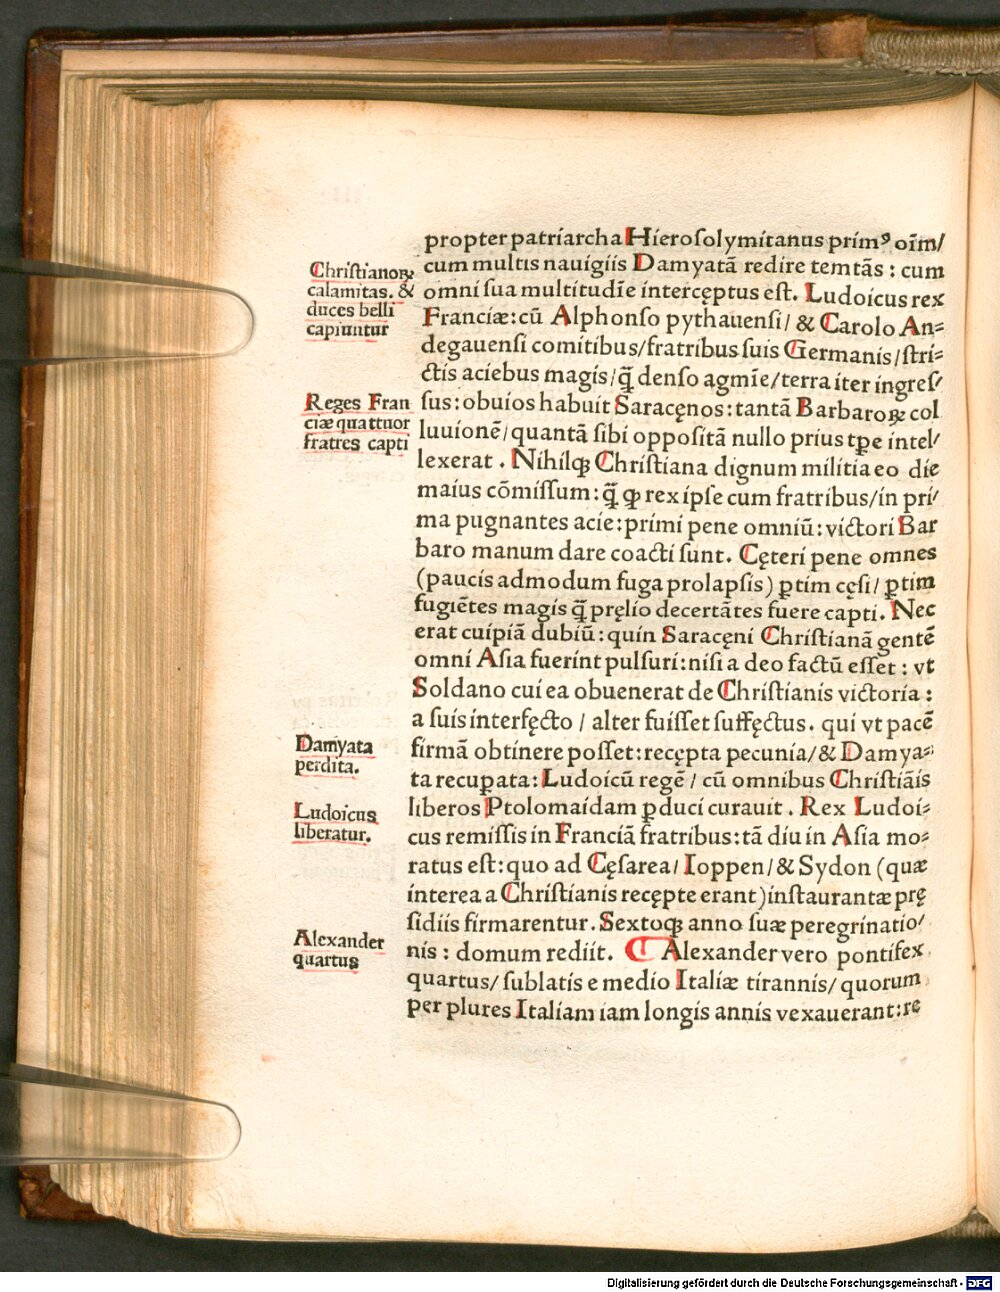 propter patriarcha Hierosolymitanus primꝰ oim̄/
cum multis nauigiis Damyatā redire temtās : cum
omni sua multitudīe intercęptus est. Ludoicus rex
Franciæ: cū Alphonso pythauensi/ & Carolo An=
degauensi comitibus/fratribus suis Germanis/stri=
ctis aciebus magis/q̄ denso agmīe/terra iter ingres/
sus: obuios habuit Saracęnos: tantā Barbaroꝝ col
luuionē/quantā sibi oppositā nullo prius tꝑe intel/
lexerat . Nihilqꝫ Christiana dignum militia eo die
maius cōmissum: q̄ ꝙ rex ipse cum fratribus/in pri/
ma pugnantes acie: primi pene omniū: victori Bar
baro manum dare coacti sunt. Cęteri pene omnes
(paucis admodum fuga prolapsis) ꝑtim cęsi/ ꝑtim
fugiētes magis q̄ pręlio decertātes fuere capti. Nec
erat cuipiā dubiū: quin Saracęni Christianā gentē
omni Asia fuerint pulsuri: nisi a deo factū esset : vt
Soldano cui ea obuenerat de Christianis victoria :
a suis interfęcto / alter fuisset suffęctus. qui vt pacē
firmā obtinere posset: recępta pecunia/& Damya=
ta recuꝑata: Ludoicū regē / cū omnibus Christiāis
liberos Ptolomaidam ꝑduci curauit . Rex Ludoi=
cus remissis in Franciā fratribus: tā diu in Asia mo=
ratus est: quo ad Cęsarea/ Ioppen/& Sydon (quæ
interea a Christianis recępte erant) instaurantæ prę
sidiis firmarentur. Sextoqꝫ anno suæ peregrinatio/
nis : domum rediit. ¶ Alexander vero pontifex
quartus/ sublatis e medio Italiæ tirannis/ quorum
per plures Italiam iam longis annis vexauerant: re
Christianoꝝ
calamitas. &
duces belli
capiuntur
Reges Fran
ciæ quattuor
fratres capti
Damyata
perdita.
Ludoicus
liberatur.
Alexander
quartus
Digitalisierung gefördert durch die Deutsche Forschungsgemeinschaft - DFG